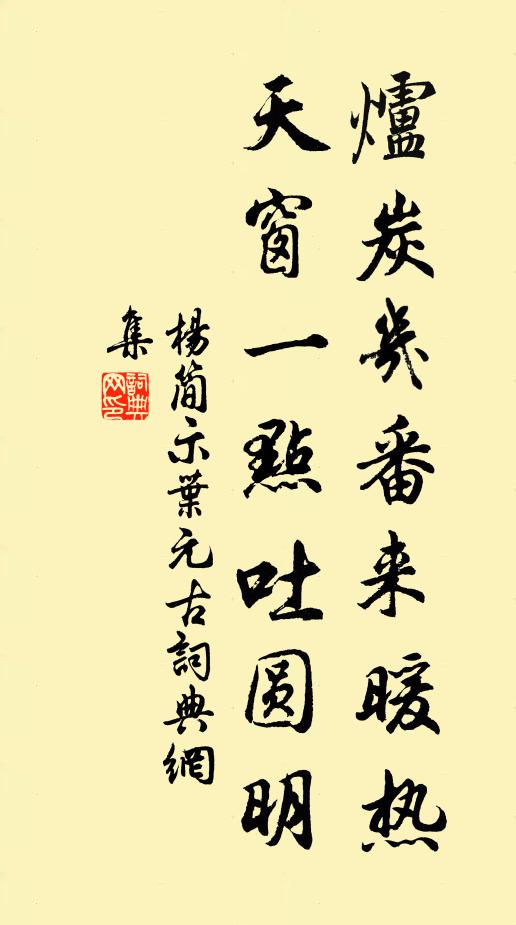 爐炭幾番来暖热
天窗一點吐圆明
楊简示葉元古詞典網
集
詞典网印